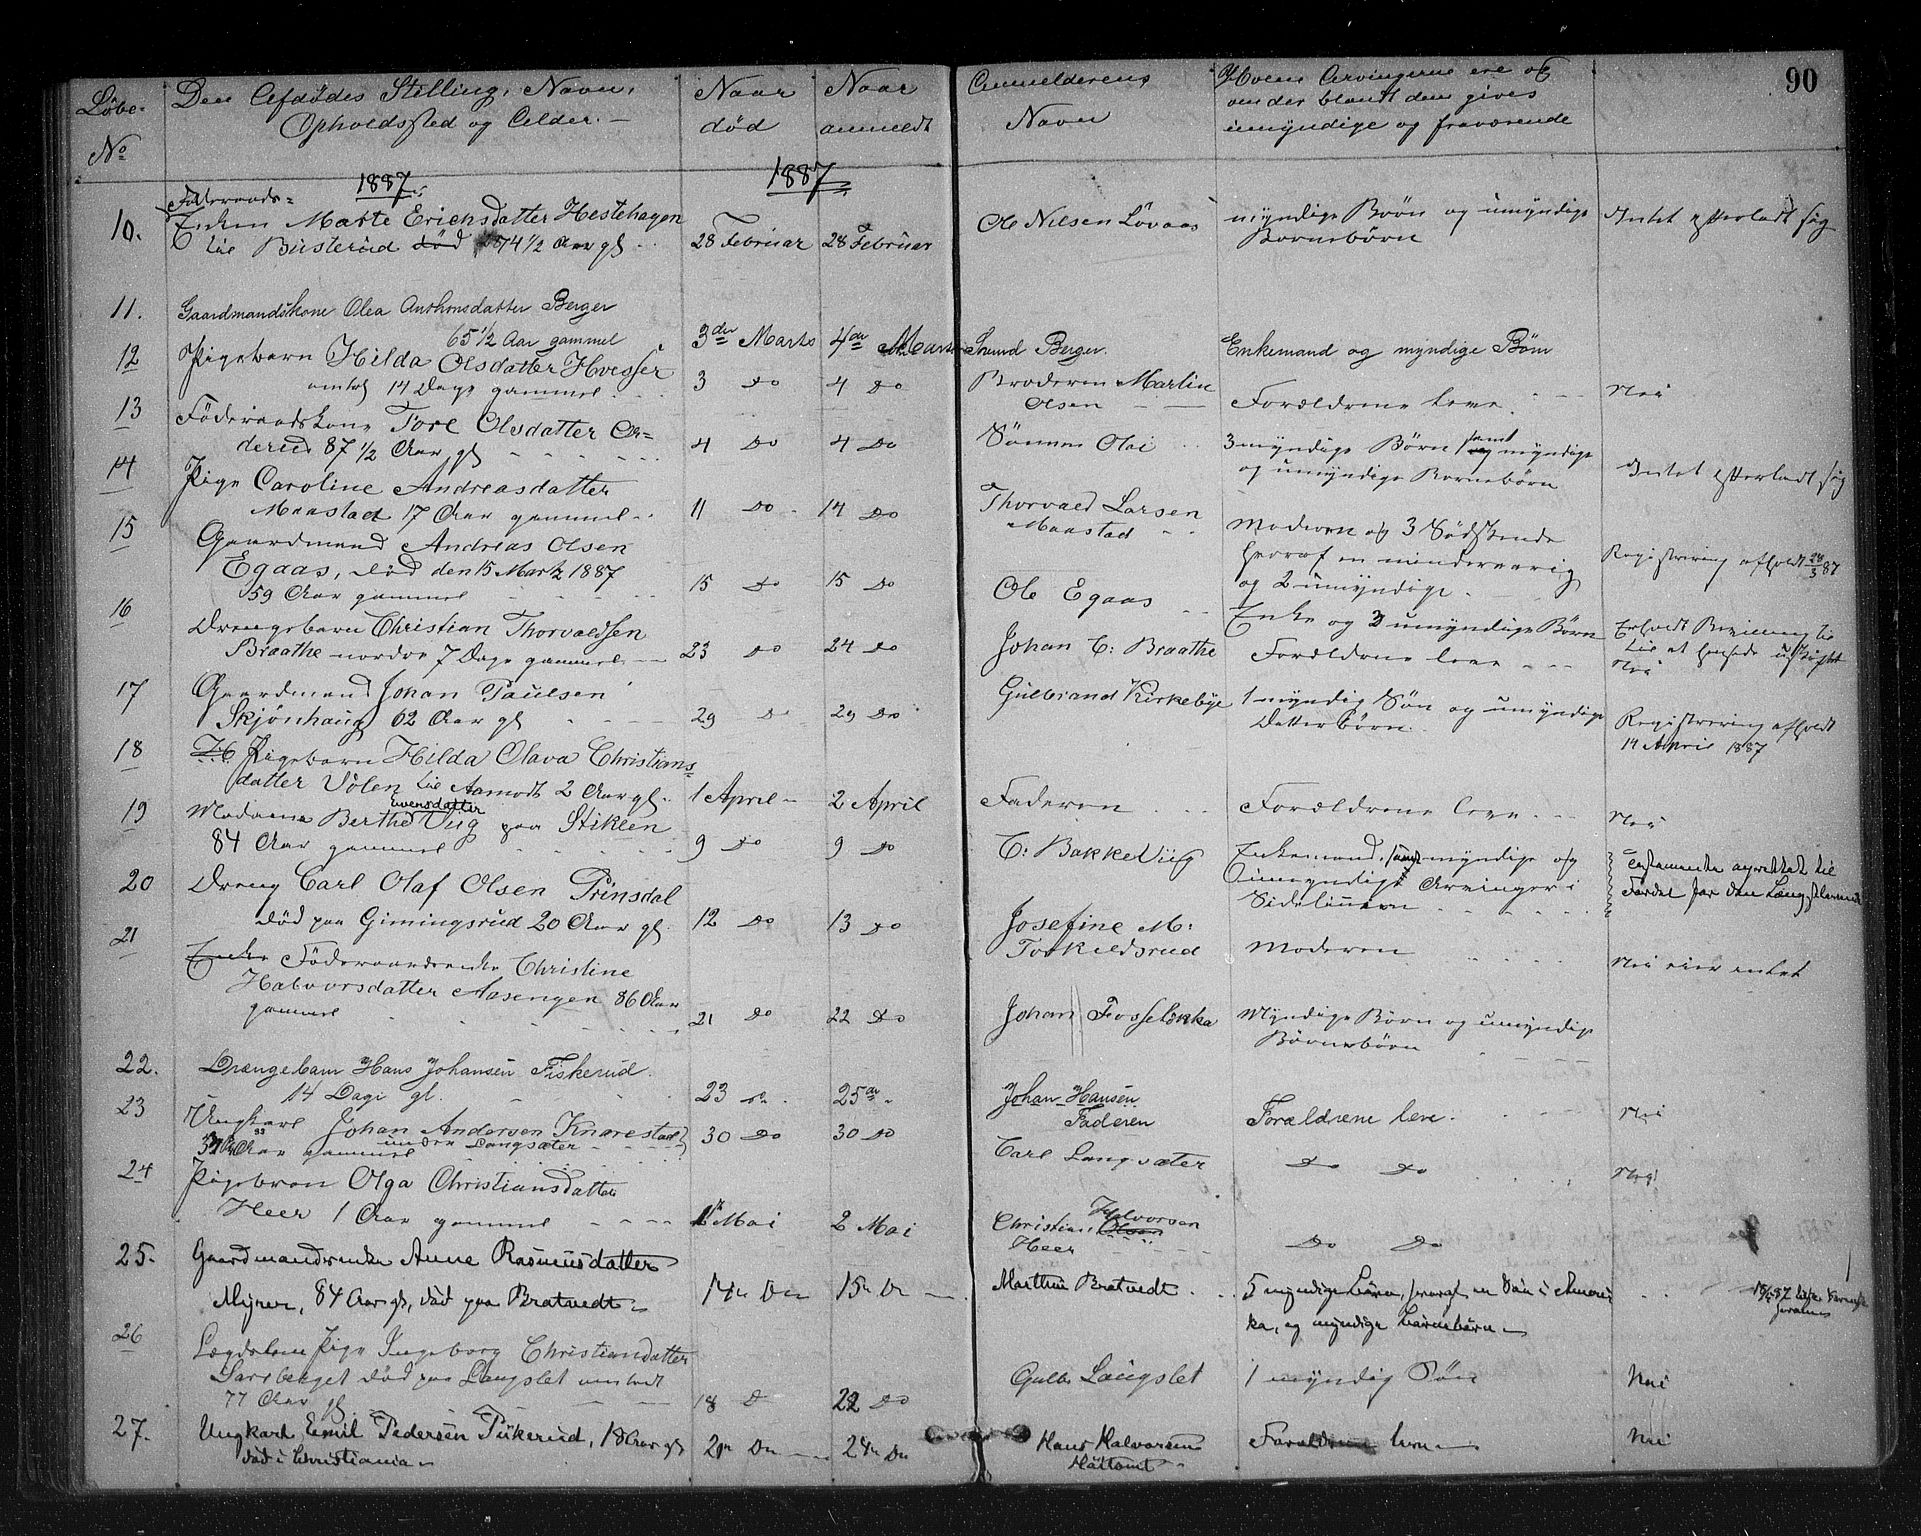 90
Løbe- No
Den Afdødes Stilling, Navn,
Opholdssted og Alder. —
Naar død
Naar anmeldt
Anmelderens Navn
Hvem Arvingerne ere og
om der blandt dem gives
umyndige og fraværende
1887.
1887
10.
Føderaads-
Enken Marte Erichsdatter Hestehagen
Busterud død 74 1/2 Aar gl
28 Februar
28 Februar
Ole Nilsen Løvaas
myndige Børn og umyndige
Børnebørn
Intet efterladt sig
11.
Gaardmandskone Olea Anthonsdatter Berger
65 1/2 Aar gammel
3die Marts
4de Marts
Berger
Enkemand og myndige Børn
12
Pigebarn Hilda Olsdatter Huesser
omtrt 14 Dage gammel
3 Do
4 Do
Broderen Martin
Olsen
Forældrene leve.
Nei
13
Føderaadskone Tore Olsdatter
derud 87 1/2 Aar gl
4 Do
4 Do
Sønnen Olai
3 myndige Børn samt myndige
og umyndige Børnebørn
Intet efterladt sig
14
Pige Caroline Andreasdatter
Maastad 17 Aar gammel
11 Do
14 Do
Thorvald Larsen
Maastad
Moderen og 3 Sødskende
heraf en mindreaarig
og 2 umyndige.
Registrering afholdt 26/3 87
15
Gaardmand Andreas Olsen
Egaas, død den 15 Marts 1887
59 Aar gammel
15 Do
15 Do
Ole Egaas
Enke og 3 umyndige Børn
Erholdt Bevilling til
16
Drengebarn Christian Thorvaldsen
Braathe nordre 7 Dage gammel
23 Do
24 Do
Johan C: Braathe
Forældrene leve
Nei
17
Gaardmand Johan Paulsen
Skjønhaug 62 Aar gl
29 Do
29 Do
Gulbrand Kirkebye
1 myndig Søn og umyndige
Datterbørn.
Registrering afholdt
14 April 1887
18
Pigebarn Hilda Olava Christians-
datter Volen Aamodt 2 Aar gl.
1 April
2 April
Faderen
Forældrene leve
Nei
19
Madame Berthe Evensdatter Viig paa Stiklen
84 Aar gammel
9 Do
9 Do
C: Bakke Viig
Enkemand, samt myndige og
umyndige Arvinger i
Sidelinien
Testamente oprettet til
Fordel for den Længstlevende
20
Dreng Carl Olaf Olsen Prinsdal
død paa Gimingsrud 20 Aar gl.
12 Do
13 Do
Josefine M:
Torkildsrud
Moderen
Nei eier intet
21
Enke Føderaadsenke Christine
Halvorsdatter Aasengen 86 Aar
gammel
21 Do
22 Do
Johan Fosseløkka
Myndige Børn og umyndige
Børnebørn
22.
Drængebarn Hans Johansen Fiskerud.
14 Dage gl.
23
25de
Johan Hansen
Faderen
Forældrene leve.
Nei
23
Ungkarl Johan Andersen Knarestad
under Langsæter
Aar gammel
30 Do
30 Do
Carl Langsæter
Do Do
Nei
24
Pigebarn Olga Christiansdatter
Heer 1 Aar gammel
1 Mai
2 Mai
Christian Olsen Halvorsen
Heer
Do Do
25.
Gaardmandsenke Anne Rasmusdatter
Myrer, 84 Aar gl, død paa Bratvedt
14de Do
15de Do
Marthin Bratvedt
5 myndige Børn, hvoraf en Søn i Ameri-
ka, og myndige Børnebørn
26
Lægdslem Pige Ingeborg Christiansdatter
død paa Langslet omtrt
77 Aar gl
18 D
22 Do
Gulb. Langslet
1 myndig Søn
Nei
27.
Ungkarl Emil Pedersen Pukerud, 18 Aar gl
død i Christiania
Hans Halvorsen
Forældrene leve
Nei